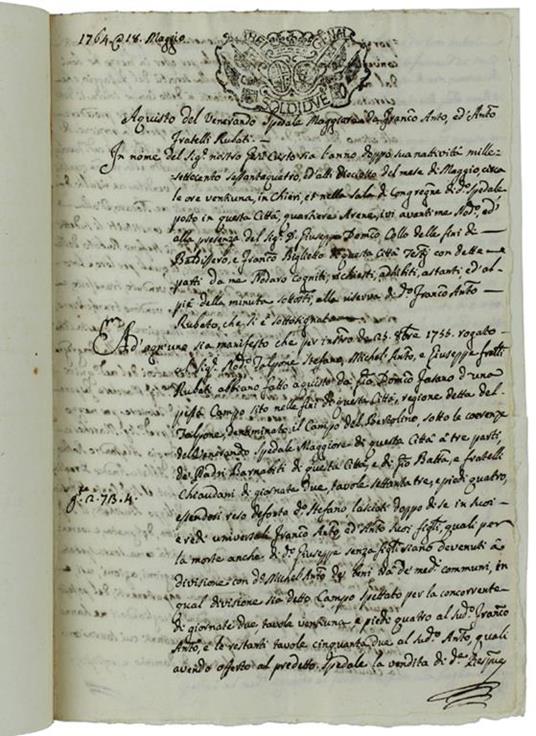 1764 @ 18. Maggio
SOLDI DVE
Aquisto del Venerando Spedale Maggiore da Franco Anto, ed Anto
fratelli Rubati. —
In nome del Sigr nostro Gesù Cristo sia l'anno doppo sua natività mille
settecento sessantaquatro, ed alli dieciotto del mese di Maggio circa
le ore ventiuna, in Chieri, et nella sala di Congregne di do Spedale
posto in questa Città, quartiere Arene, ivi avanti me Nodo ed
alla presenza del Sigr D. Giuseppe Domco Collo delle fini di
Baldissero, e Franco Biglietto di questa Città Testj con dette
parti da me Nodaro cogniti, richiesti, adhibiti, astanti ed al
piè della minuta sottotti, alla riserva di do Franco Anto
Rubato, che si è sottosignato
Ad ogn'uno sia manifesto che per instro de 25. 9bre 1755. rogato
Sigr Nodo Talpone Stefano, Michel Anto, e Giuseppe fratti
Rubati abbiano fatto aquisto da Gio Domco Fasano d'una
pezza Campo sito nelle fini di questa Città, regione detta del
Talpone, denominato il Campo del Bersolino, sotto le coerenze
del Venerando Spedale Maggiore di questa Città à tre parti,
de Padri Barnabiti di questa Città, e di Gio Batta, e fratelli
Cheaudani di giornate due, tavole settanta tre, e piedi quatro,
ga 2. 73. 4.
essendosi reso defonto do Stefano lasciati doppo di se in suoi
eredi universali Franco Anto ed Anto suoi figlj, quali per
la morte anche di do Giuseppe senza figlj siano devenuti à
divisione con do Michel Anto dei beni tra de medi communi, in
qual divisione sia detto Campo spettato per la concorrente
di giornate due tavole ventiuna, e piedi quatro al sudo Franco
Anto, e le restanti tavole cinquanta due al sudo Anto, quali
avendo offerto al predetto Spedale la vendita di da